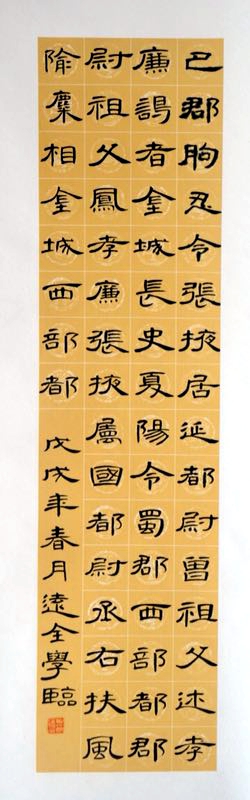 巴郡朐忍令張掖居延都尉曾祖父述孝
廉謁者金城長史夏陽令蜀郡西部都郡
尉祖父鳳孝廉張掖屬國都尉丞右扶風
隃麋相金城西部都
戊戌年春月遠全學臨